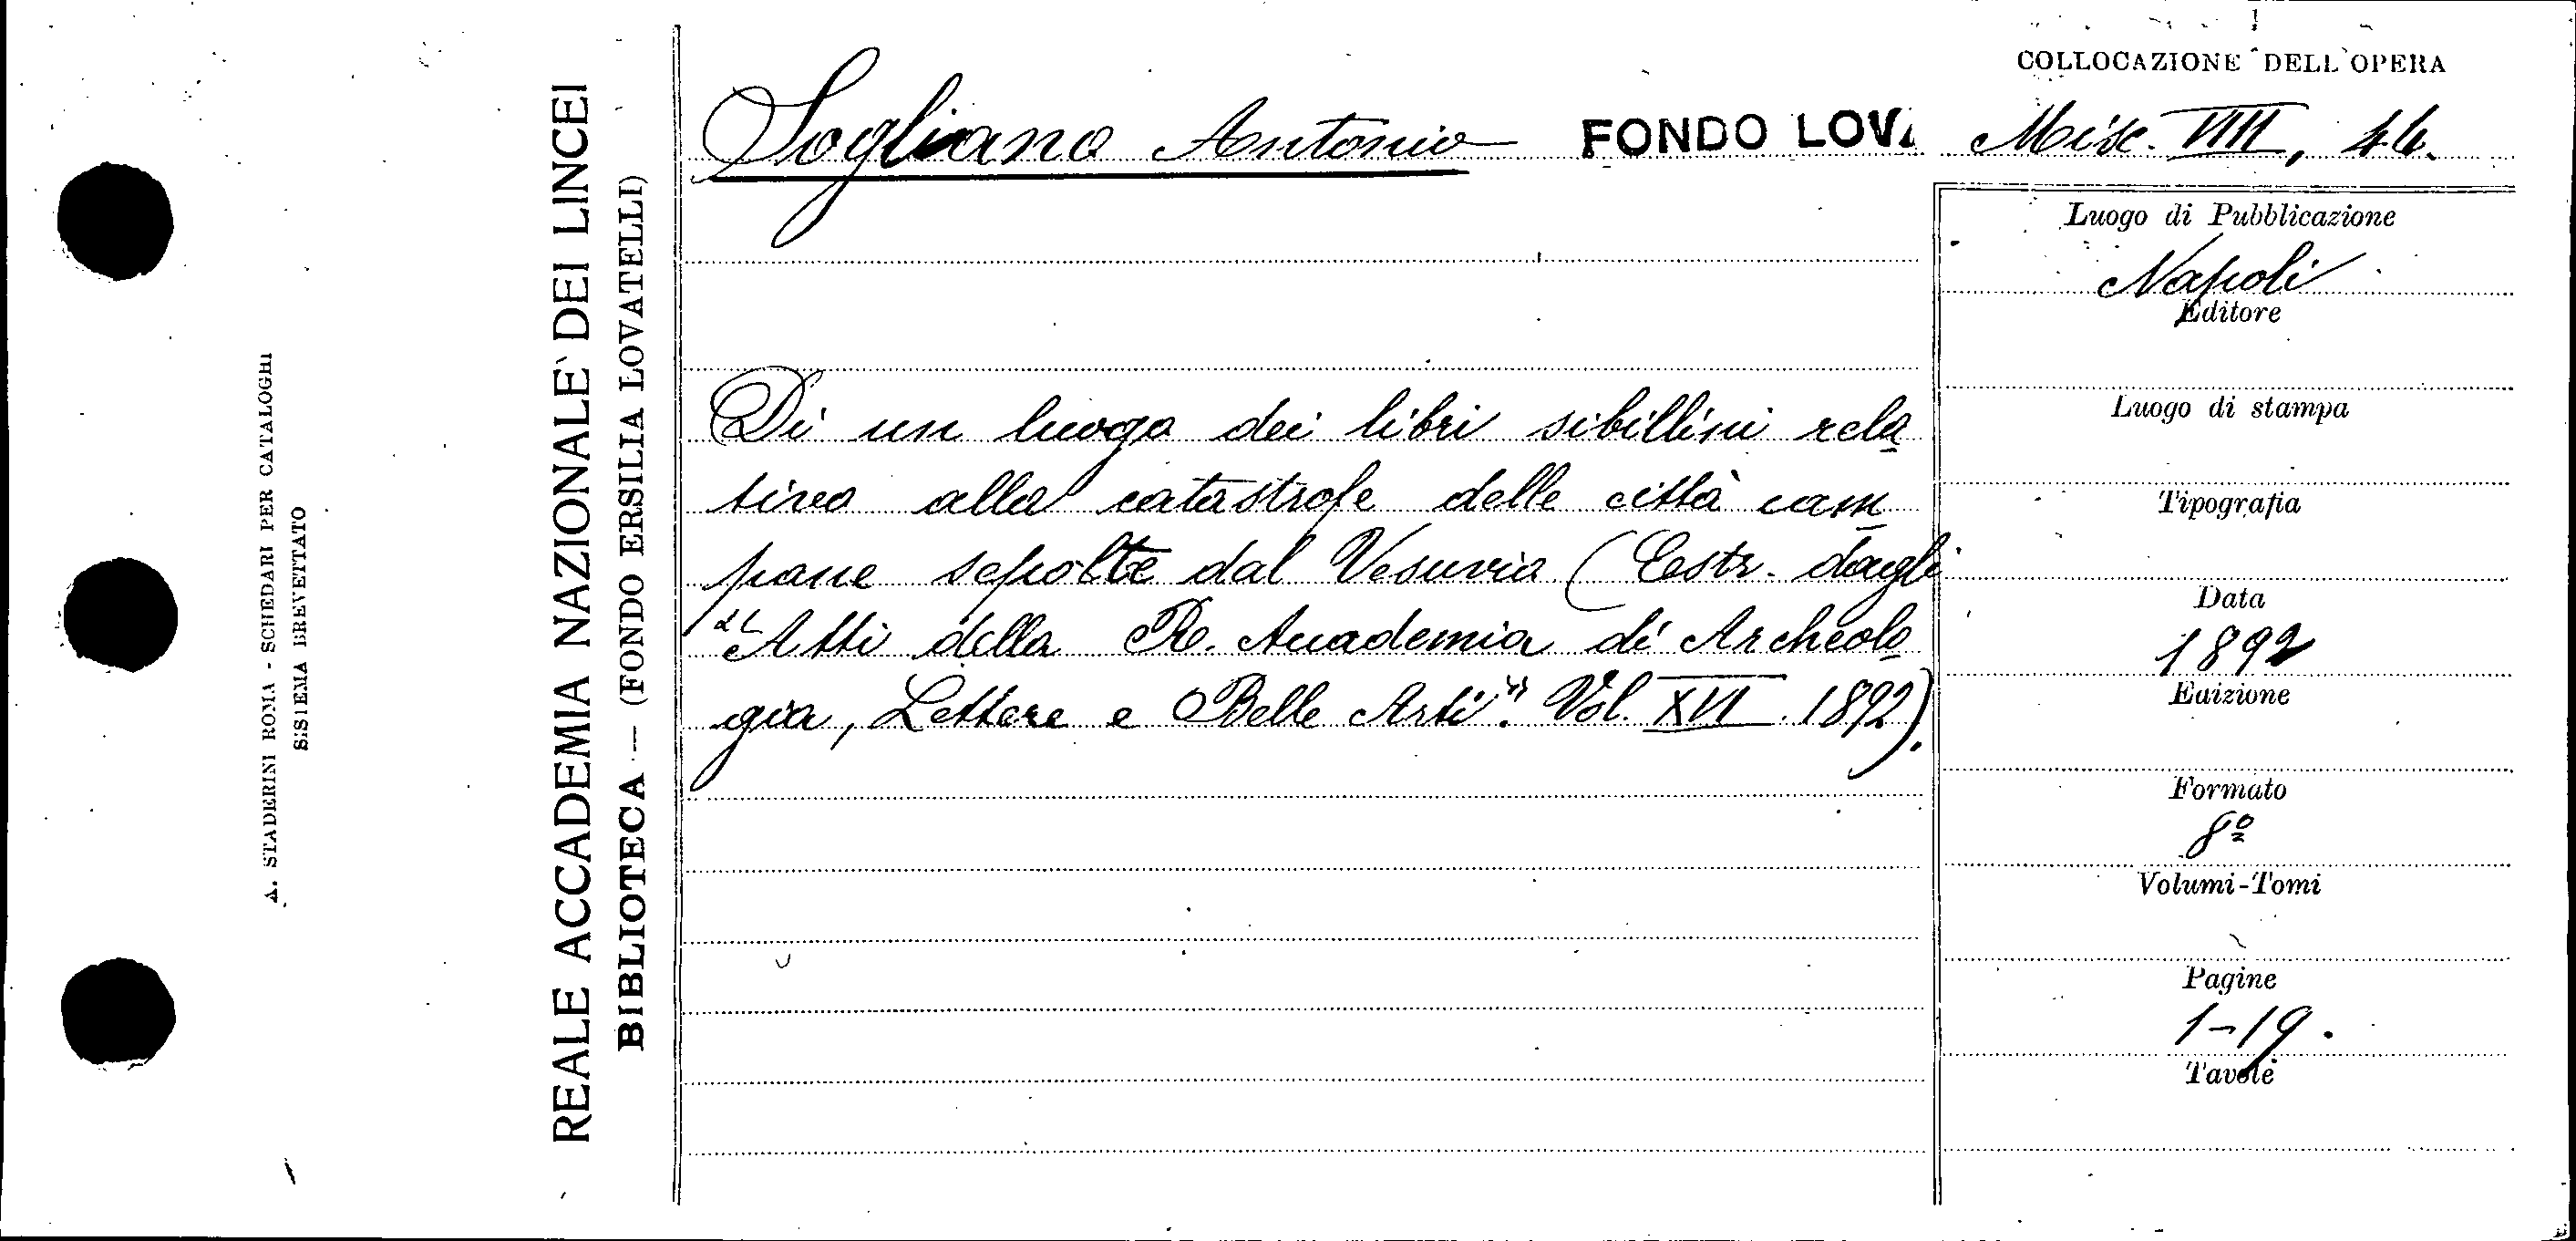 A. STADERINI ROMA - SCHEDARI PER CATALOGHI
SISTEMA BREVETTATO
REALE ACCADEMIA NAZIONALE DEI LINCEI
BIBLIOTECA — (FONDO ERSILIA LOVATELLI)
Sogliano Antonio FONDO LOVA
Di un luogo dei libri sibillini rela
tivo alla catastrofe delle città cam
pane sepolte dal Vesuvio (Estr. dagli
"Atti della R. Accademia di Archeolo
gia, Lettere e Belle Arti". Vol. XVI. 1892).
COLLOCAZIONE DELL'OPERA
Misc. VIII, 44.
Luogo di Pubblicazione
Napoli
Editore
Luogo di stampa
Tipografia
Data
1892
Edizione
Formato
8º
Volumi-Tomi
Pagine
1-19.
Tavole